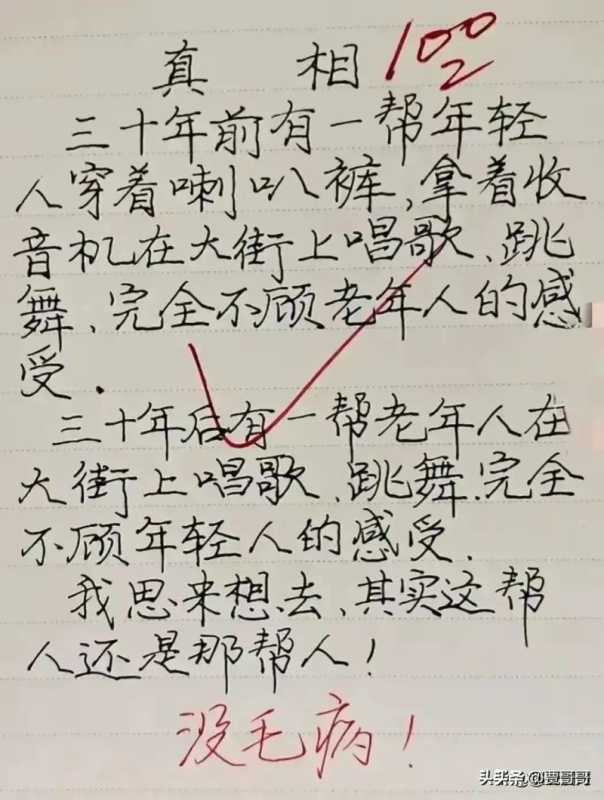 真 相 100
三十年前有一帮年轻
人穿着喇叭裤,拿着收
音机在大街上唱歌、跳
舞、完全不顾老年人的感
受.
三十年后有一帮老年人在
大街上唱歌、跳舞.完全
不顾年轻人的感受.
我思来想去、其实这帮
人还是那帮人!
没毛病!
头条@贾哥哥